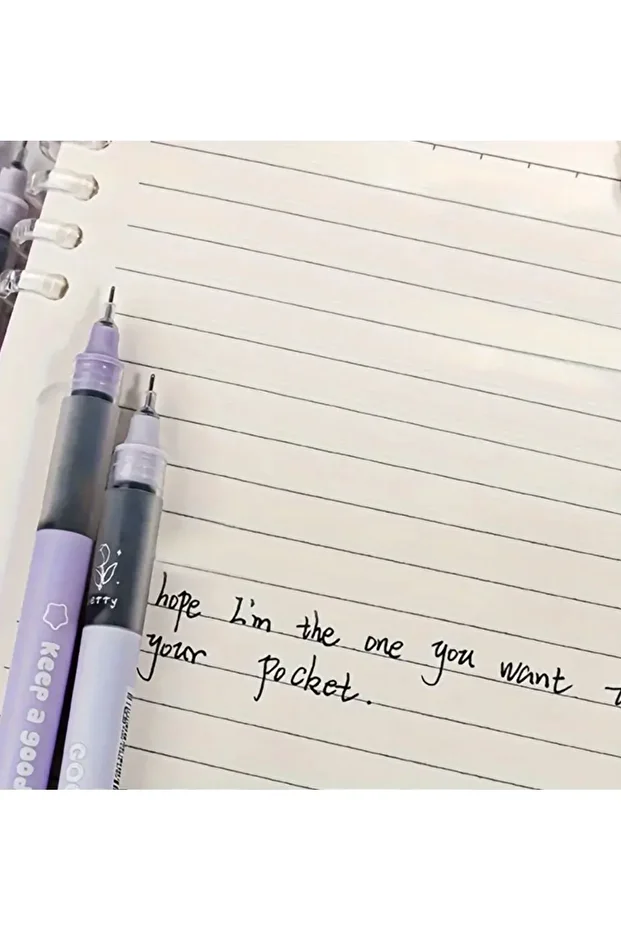 hope I'm the one you want
your pocket.
Keep a good